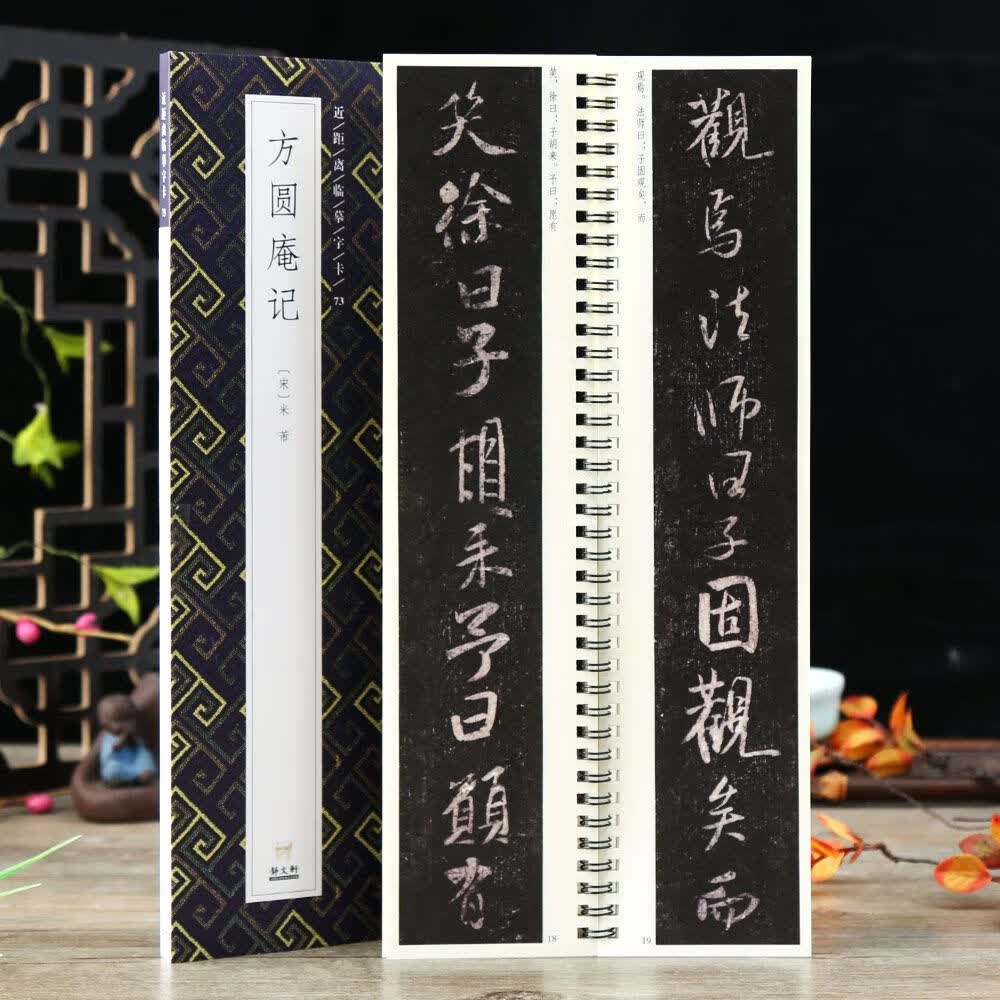 近距离临摹字卡 73
近/距/离/临/摹/字/卡/73
方圆庵记
〔宋〕米芾
静文轩
笑徐曰子胡来予曰愿有
笑,徐曰:子胡来。予曰:愿有
18
观焉。法师曰:子固观矣,而
觀焉法师曰子固觀矣而
19